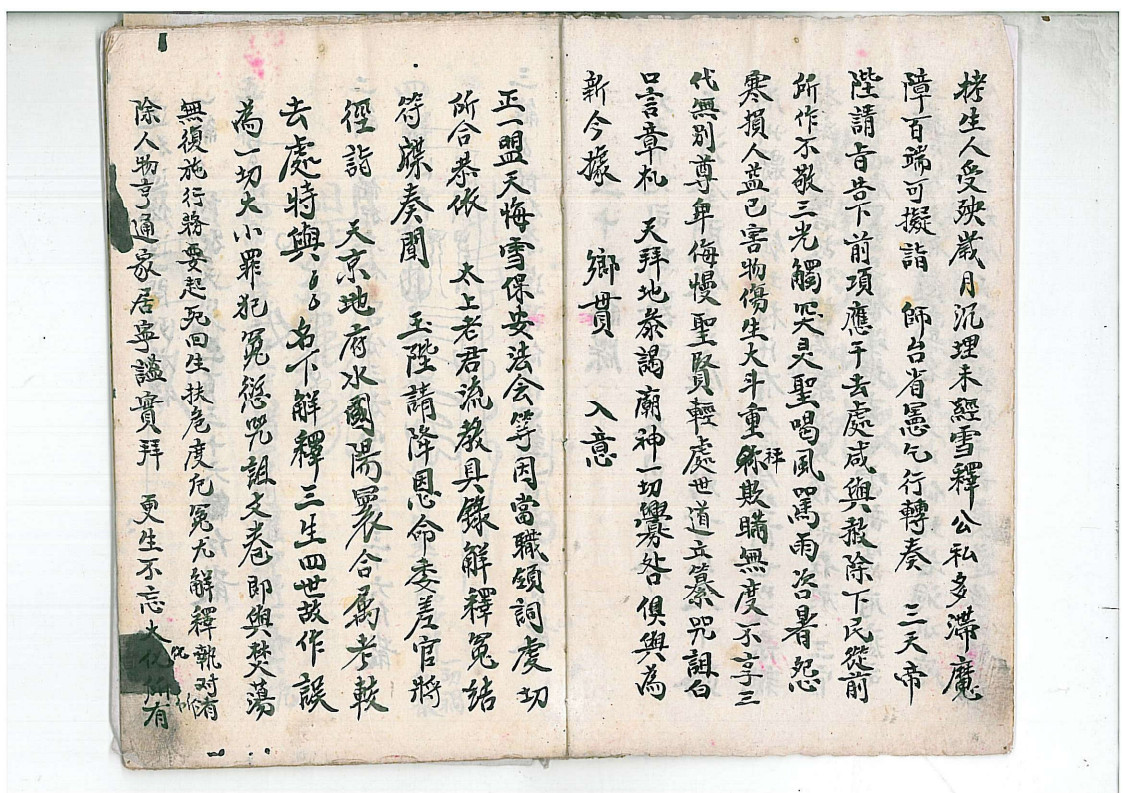 栲生人受殃歲月沉埋未經雪釋公私多滯魔
障百端可擬詣　師台省憲乞行轉奏　三天帝
陛請旨告下前項應干去處咸與赦除下民從前
所作不敬三光觸突灵聖喝風罵雨次暑怨
寒損人益己害物傷生大斗重称秤欺瞞無度不享三
代無别尊卑侮慢聖賢輕處世道立纂咒詛白
口言章札　天拜地叅謁廟神一切釁咎俱與為
新今據　鄉貫　入意
正一盟天悔雪保安法会等因當職領詞虔切
所合恭依　太上老君流教具錄解釋冤結
符牒奏聞　玉陛請降恩命委差官將
徑詣　天京地府水國陽寰合属考較
去處特與　名下解釋三生四世故作誤
為一切大小罪犯冤愆咒詛文卷即與焚蕩
無復施行務要起死回生扶危度厄冤尤解釋執对消
除人物亨通家居寧謐實拜　更生不忘大化所有